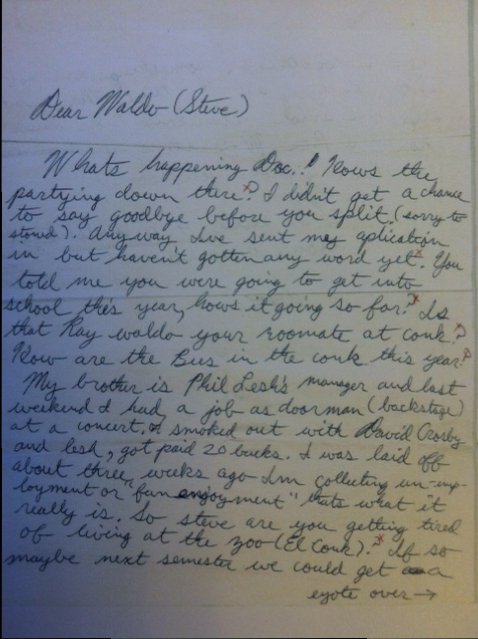 Dear Waldo (Steve)
Whats happening Doc..! Hows the
partying down there? I didn't get a chance
to say goodbye before you split, (sorry to
stoned). Anyway Ive sent my aplication
in but haven't gotten any word yet. You
told me you were going to get into
school this year, hows it going so far? Is
that Ray waldo your roomate at conk?
How are the Bus in the conk this year?
My brother is Phil Lesh's manager and last
weekend I had a job as doorman (backstage)
at a concert, I smoked out with David Crosby
and lesh, got paid 20 bucks. I was laid off
about three weeks ago Im collecting un-emp-
loyment or "fun enjoyment" thats what it
really is. So steve are you getting tired
of living at the zoo (El Conk)? If so
maybe next semester we could get a
eyote over →